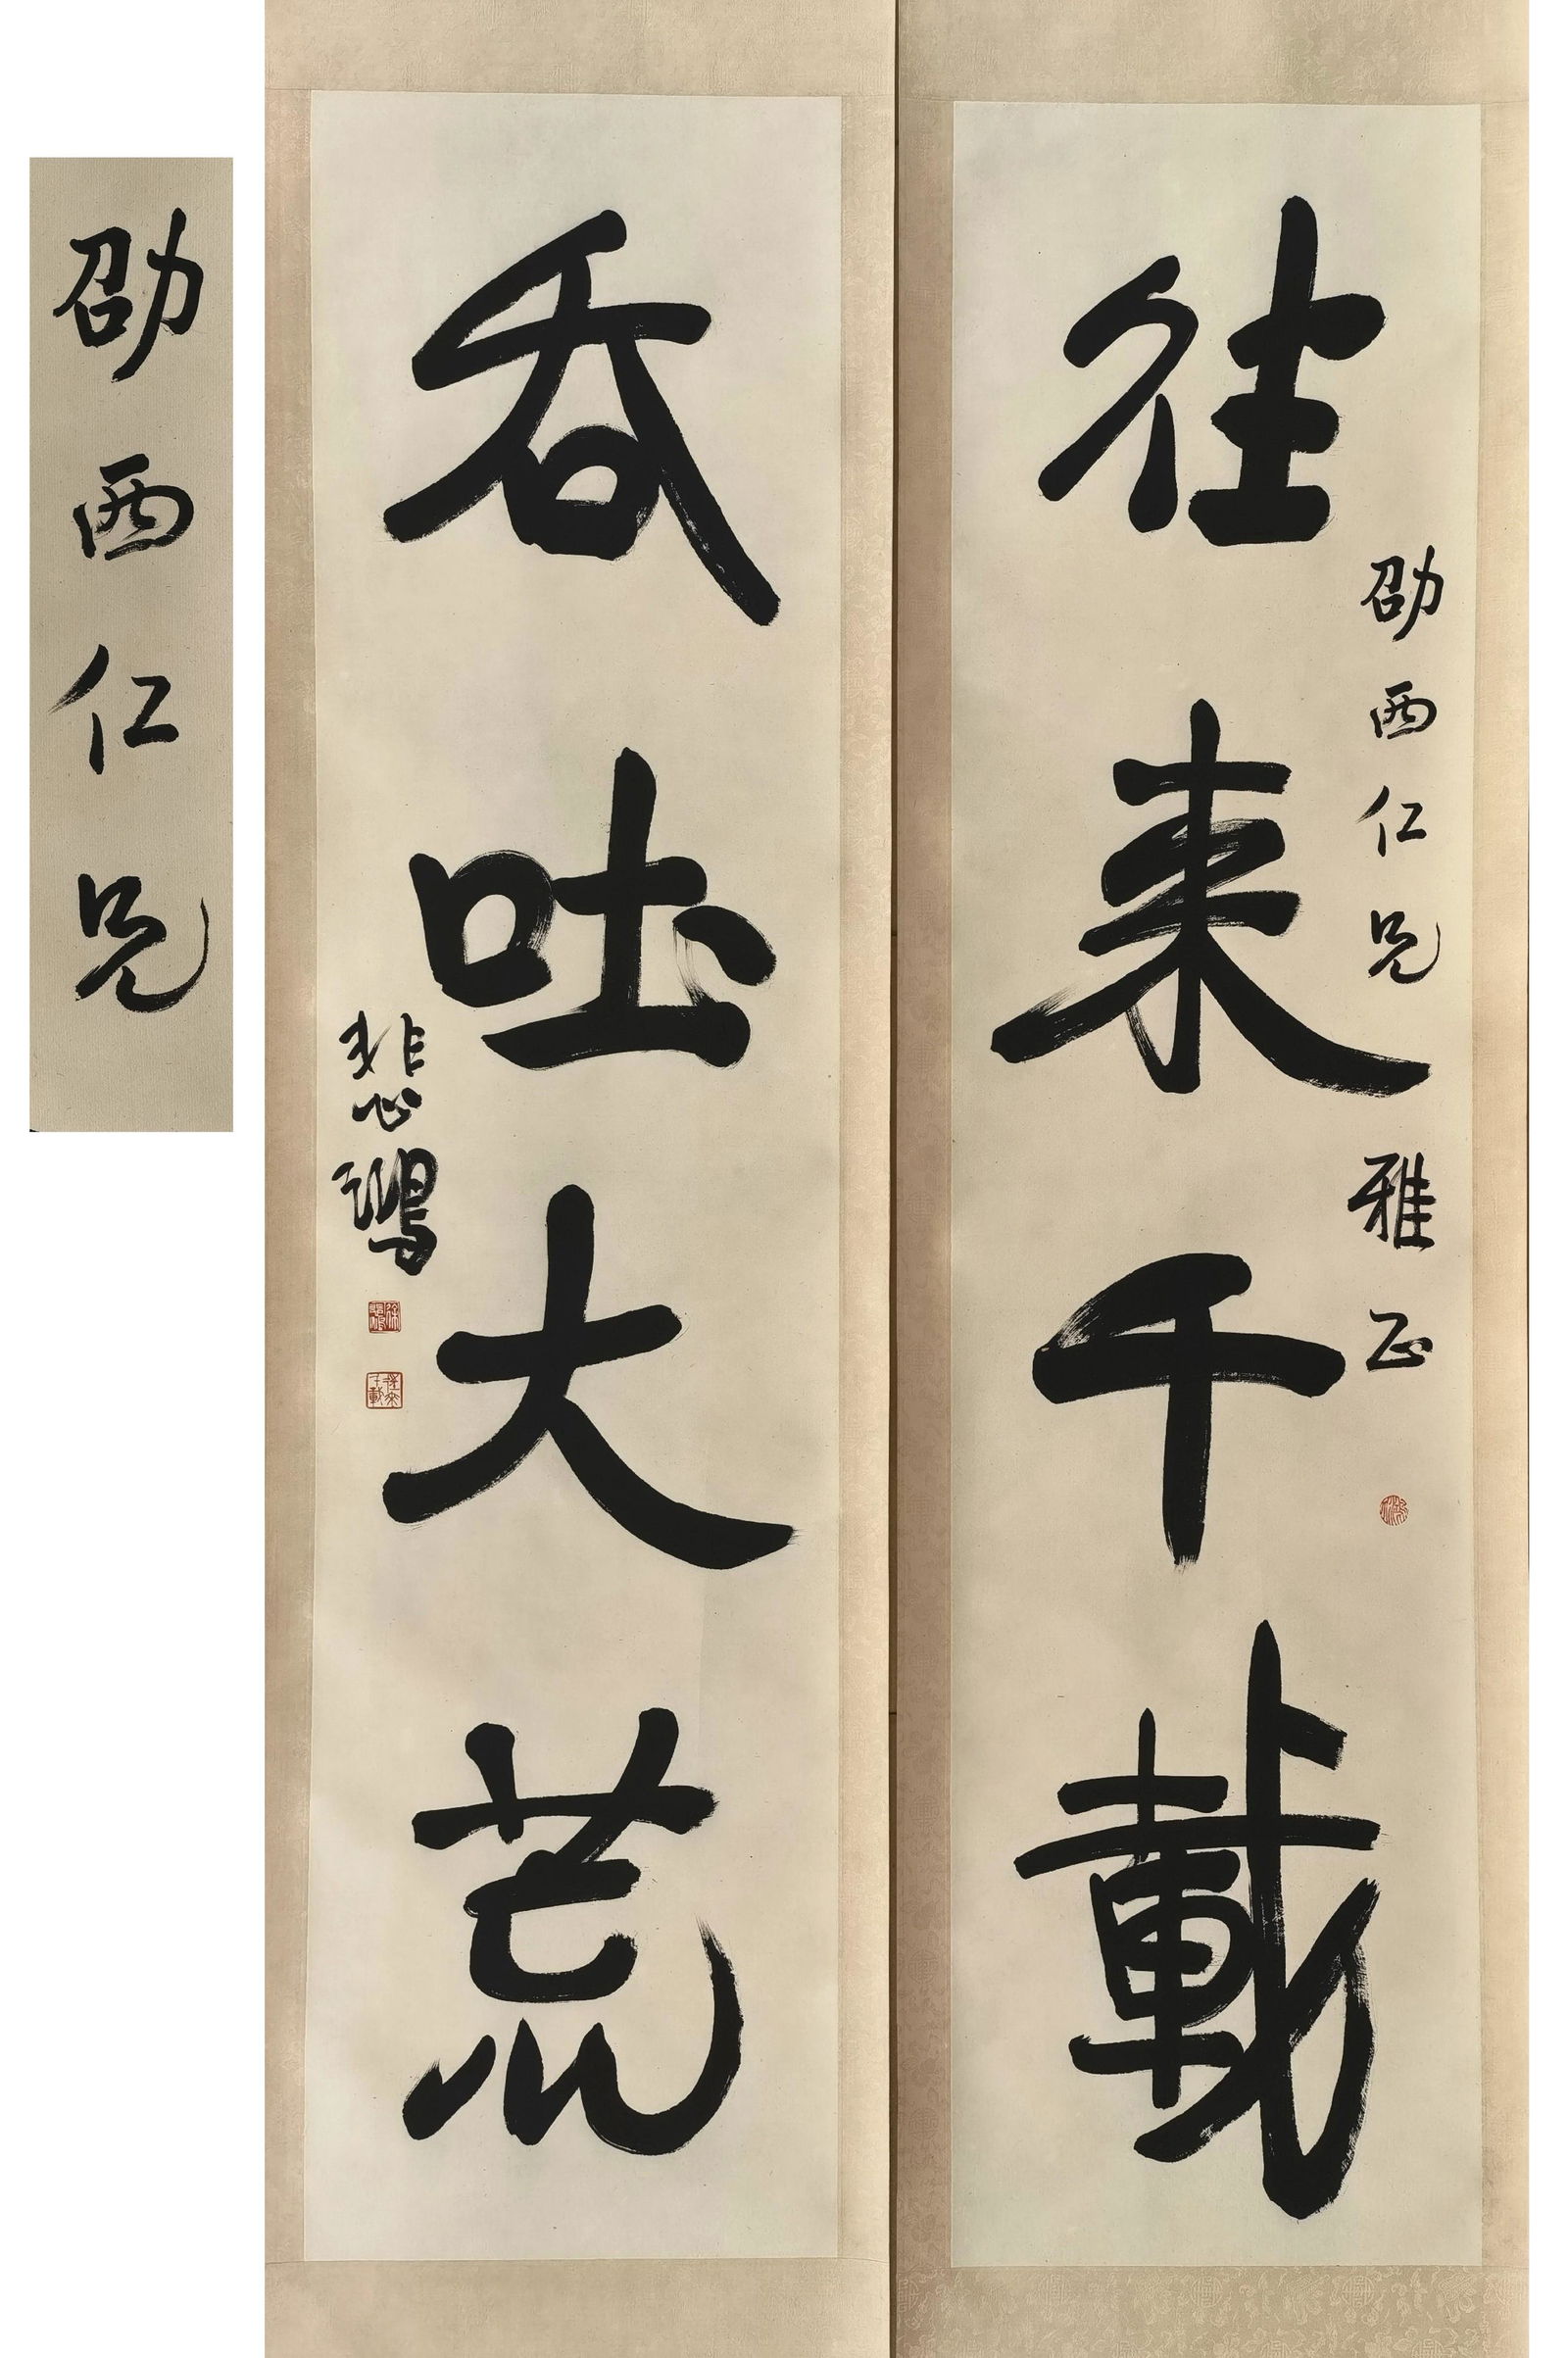 往来千載
劭西仁兄雅正
吞吐大荒
悲鴻
劭西仁兄